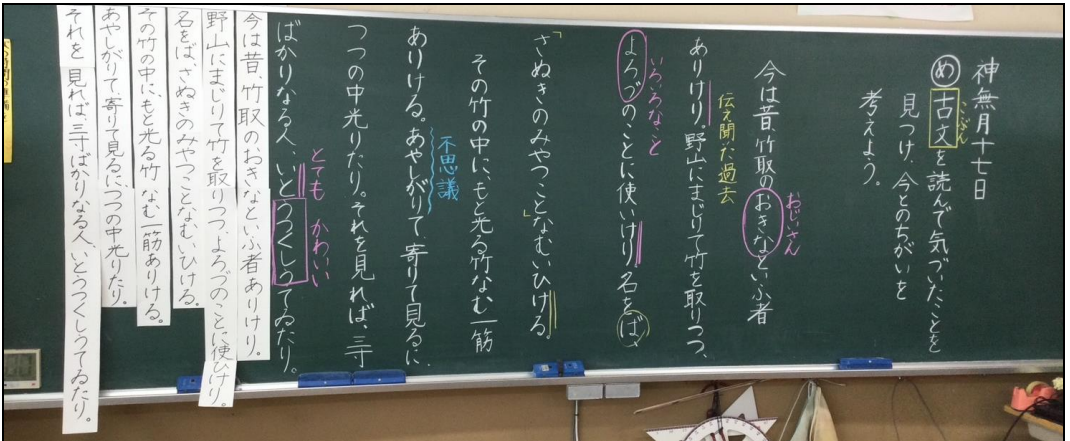 神無月十七日
め 古文を読んで気づいたことを
こぶん
見つけ、今とのちがいを
考えよう。
おじいさん
今は昔、竹取のおきなといふ者
伝え聞いた過去
ありけり。野山にまじりて竹を取りつつ、
いろいろなこと
よろづのことに使いけり。名をば、
「さぬきのみやつこ」となむいひける。
その竹の中に、もと光る竹なむ一筋
不思議
ありける。あやしがりて、寄りて見るに、
つつの中光りたり。それを見れば、三寸
とても かわいい
ばかりなる人、いとうつくしうてゐたり。
今は昔、竹取のおきなといふ者ありけり。
野山にまじりて竹を取りつつ、よろづのことに使ひけり。
名をば、さぬきのみやつことなむいひける。
その竹の中に、もと光る竹なむ一筋ありける。
あやしがりて、寄りて見るに、つつの中光りたり。
それを見れば、三寸ばかりなる人、いとうつくしうてゐたり。